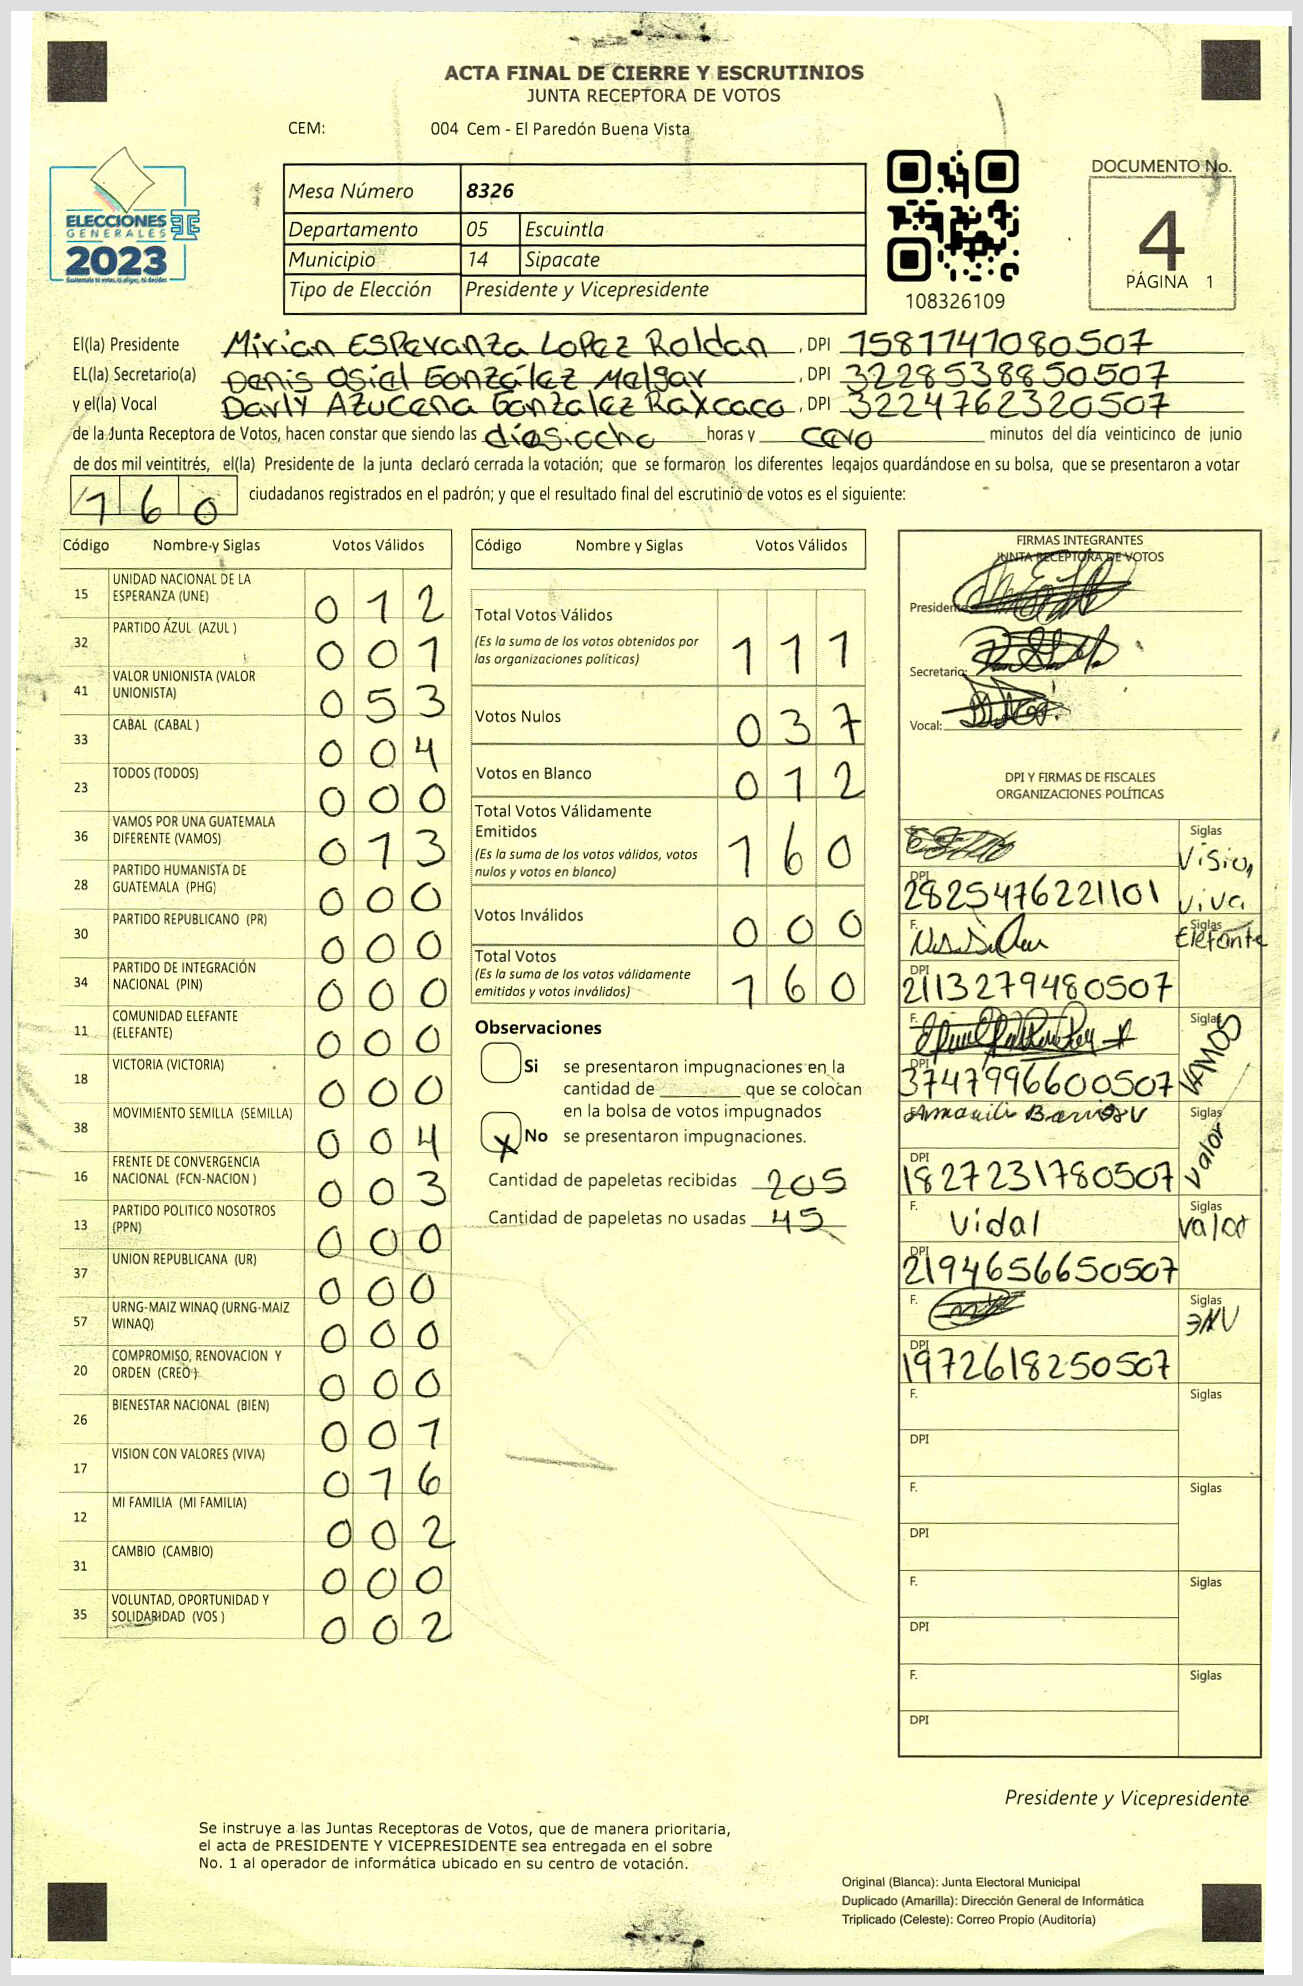 ACTA FINAL DE CIERRE Y ESCRUTINIOS
JUNTA RECEPTORA DE VOTOS
CEM: 004 Cem - El Paredón Buena Vista
ELECCIONES
GENERALES
2023
Mesa Número 8326
Departamento 05 Escuintla
Municipio 14 Sipacate
Tipo de Elección Presidente y Vicepresidente
108326109
DOCUMENTO No.
4
PÁGINA 1
El(la) Presidente Mirian Esperanza Lopez Roldan, DPI 1581741080507
EL(la) Secretario(a) Denis Osiel González Melgar, DPI 3228538850507
y el(la) Vocal Darly Azucena Gonzalez Raxcaco, DPI 3224762320507
de la Junta Receptora de Votos, hacen constar que siendo las diesiocho horas y cero minutos del día veinticinco de junio
de dos mil veintitrés, el(la) Presidente de la junta declaró cerrada la votación; que se formaron los diferentes legajos quardándose en su bolsa, que se presentaron a votar
160 ciudadanos registrados en el padrón; y que el resultado final del escrutinio de votos es el siguiente:
Código Nombre y Siglas Votos Válidos
15 UNIDAD NACIONAL DE LA ESPERANZA (UNE) 012
32 PARTIDO AZUL (AZUL ) 001
41 VALOR UNIONISTA (VALOR UNIONISTA) 053
33 CABAL (CABAL ) 004
23 TODOS (TODOS) 000
36 VAMOS POR UNA GUATEMALA DIFERENTE (VAMOS) 013
28 PARTIDO HUMANISTA DE GUATEMALA (PHG) 000
30 PARTIDO REPUBLICANO (PR) 000
34 PARTIDO DE INTEGRACIÓN NACIONAL (PIN) 000
11 COMUNIDAD ELEFANTE (ELEFANTE) 000
18 VICTORIA (VICTORIA) 000
38 MOVIMIENTO SEMILLA (SEMILLA) 004
16 FRENTE DE CONVERGENCIA NACIONAL (FCN-NACION ) 003
13 PARTIDO POLITICO NOSOTROS (PPN) 000
37 UNION REPUBLICANA (UR) 000
57 URNG-MAIZ WINAQ (URNG-MAIZ WINAQ) 000
20 COMPROMISO, RENOVACION Y ORDEN (CREO ) 000
26 BIENESTAR NACIONAL (BIEN) 001
17 VISION CON VALORES (VIVA) 016
12 MI FAMILIA (MI FAMILIA) 002
31 CAMBIO (CAMBIO) 000
35 VOLUNTAD, OPORTUNIDAD Y SOLIDARIDAD (VOS ) 002
Código Nombre y Siglas Votos Válidos
Total Votos Válidos
(Es la suma de los votos obtenidos por
las organizaciones políticas) 111
Votos Nulos 037
Votos en Blanco 012
Total Votos Válidamente
Emitidos
(Es la suma de los votos válidos, votos
nulos y votos en blanco) 160
Votos Inválidos 000
Total Votos
(Es la suma de los votos válidamente
emitidos y votos inválidos) 160
Observaciones
Si se presentaron impugnaciones en la
cantidad de ______ que se colocan
en la bolsa de votos impugnados
X No se presentaron impugnaciones.
Cantidad de papeletas recibidas 205
Cantidad de papeletas no usadas 45
FIRMAS INTEGRANTES
JUNTA RECEPTORA DE VOTOS
Presidente
Secretario:
Vocal:
DPI Y FIRMAS DE FISCALES
ORGANIZACIONES POLÍTICAS
Siglas Vision viva
DPI 2825476221101
F. Siglas Elefante
DPI 2113279480507
F. Siglas VAMOS
DPI 3747996600507
Siglas Valor
DPI 1827231780507
F. Vidal Siglas Valor
DPI 2194656650507
F. Siglas
DPI 1972618250507
F. Siglas
DPI
F. Siglas
DPI
F. Siglas
DPI
F. Siglas
DPI
Presidente y Vicepresidente
Se instruye a las Juntas Receptoras de Votos, que de manera prioritaria,
el acta de PRESIDENTE Y VICEPRESIDENTE sea entregada en el sobre
No. 1 al operador de informática ubicado en su centro de votación.
Original (Blanca): Junta Electoral Municipal
Duplicado (Amarilla): Dirección General de Informática
Triplicado (Celeste): Correo Propio (Auditoría)